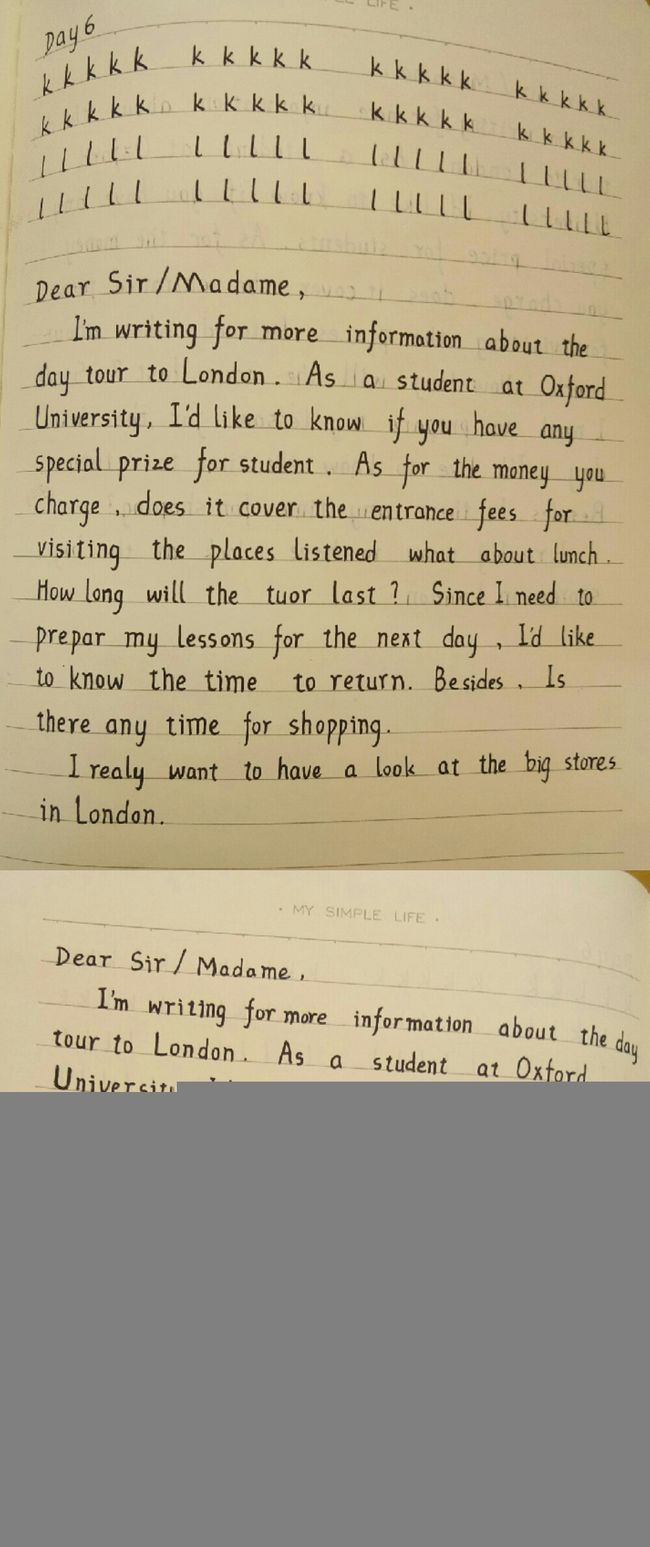 LIFE ·
Day 6
k k k k k k k k k k k k k k k k k k k k
k k k k k k k k k k k k k k k k k k k k
l l l l l l l l l l l l l l l l l l l l
l l l l l l l l l l l l l l l l l l l l
Dear Sir/Madame,
I'm writing for more information about the
day tour to London. As a student at Oxford
University, I'd like to know if you have any
special prize for student. As for the money you
charge, does it cover the entrance fees for
visiting the places listened what about lunch.
How long will the tuor last? Since I need to
prepar my lessons for the next day, I'd like
to know the time to return. Besides, Is
there any time for shopping.
I realy want to have a look at the big stores
in London.
· MY SIMPLE LIFE ·
Dear Sir/Madame,
I'm writing for more information about the day
tour to London. As a student at Oxford